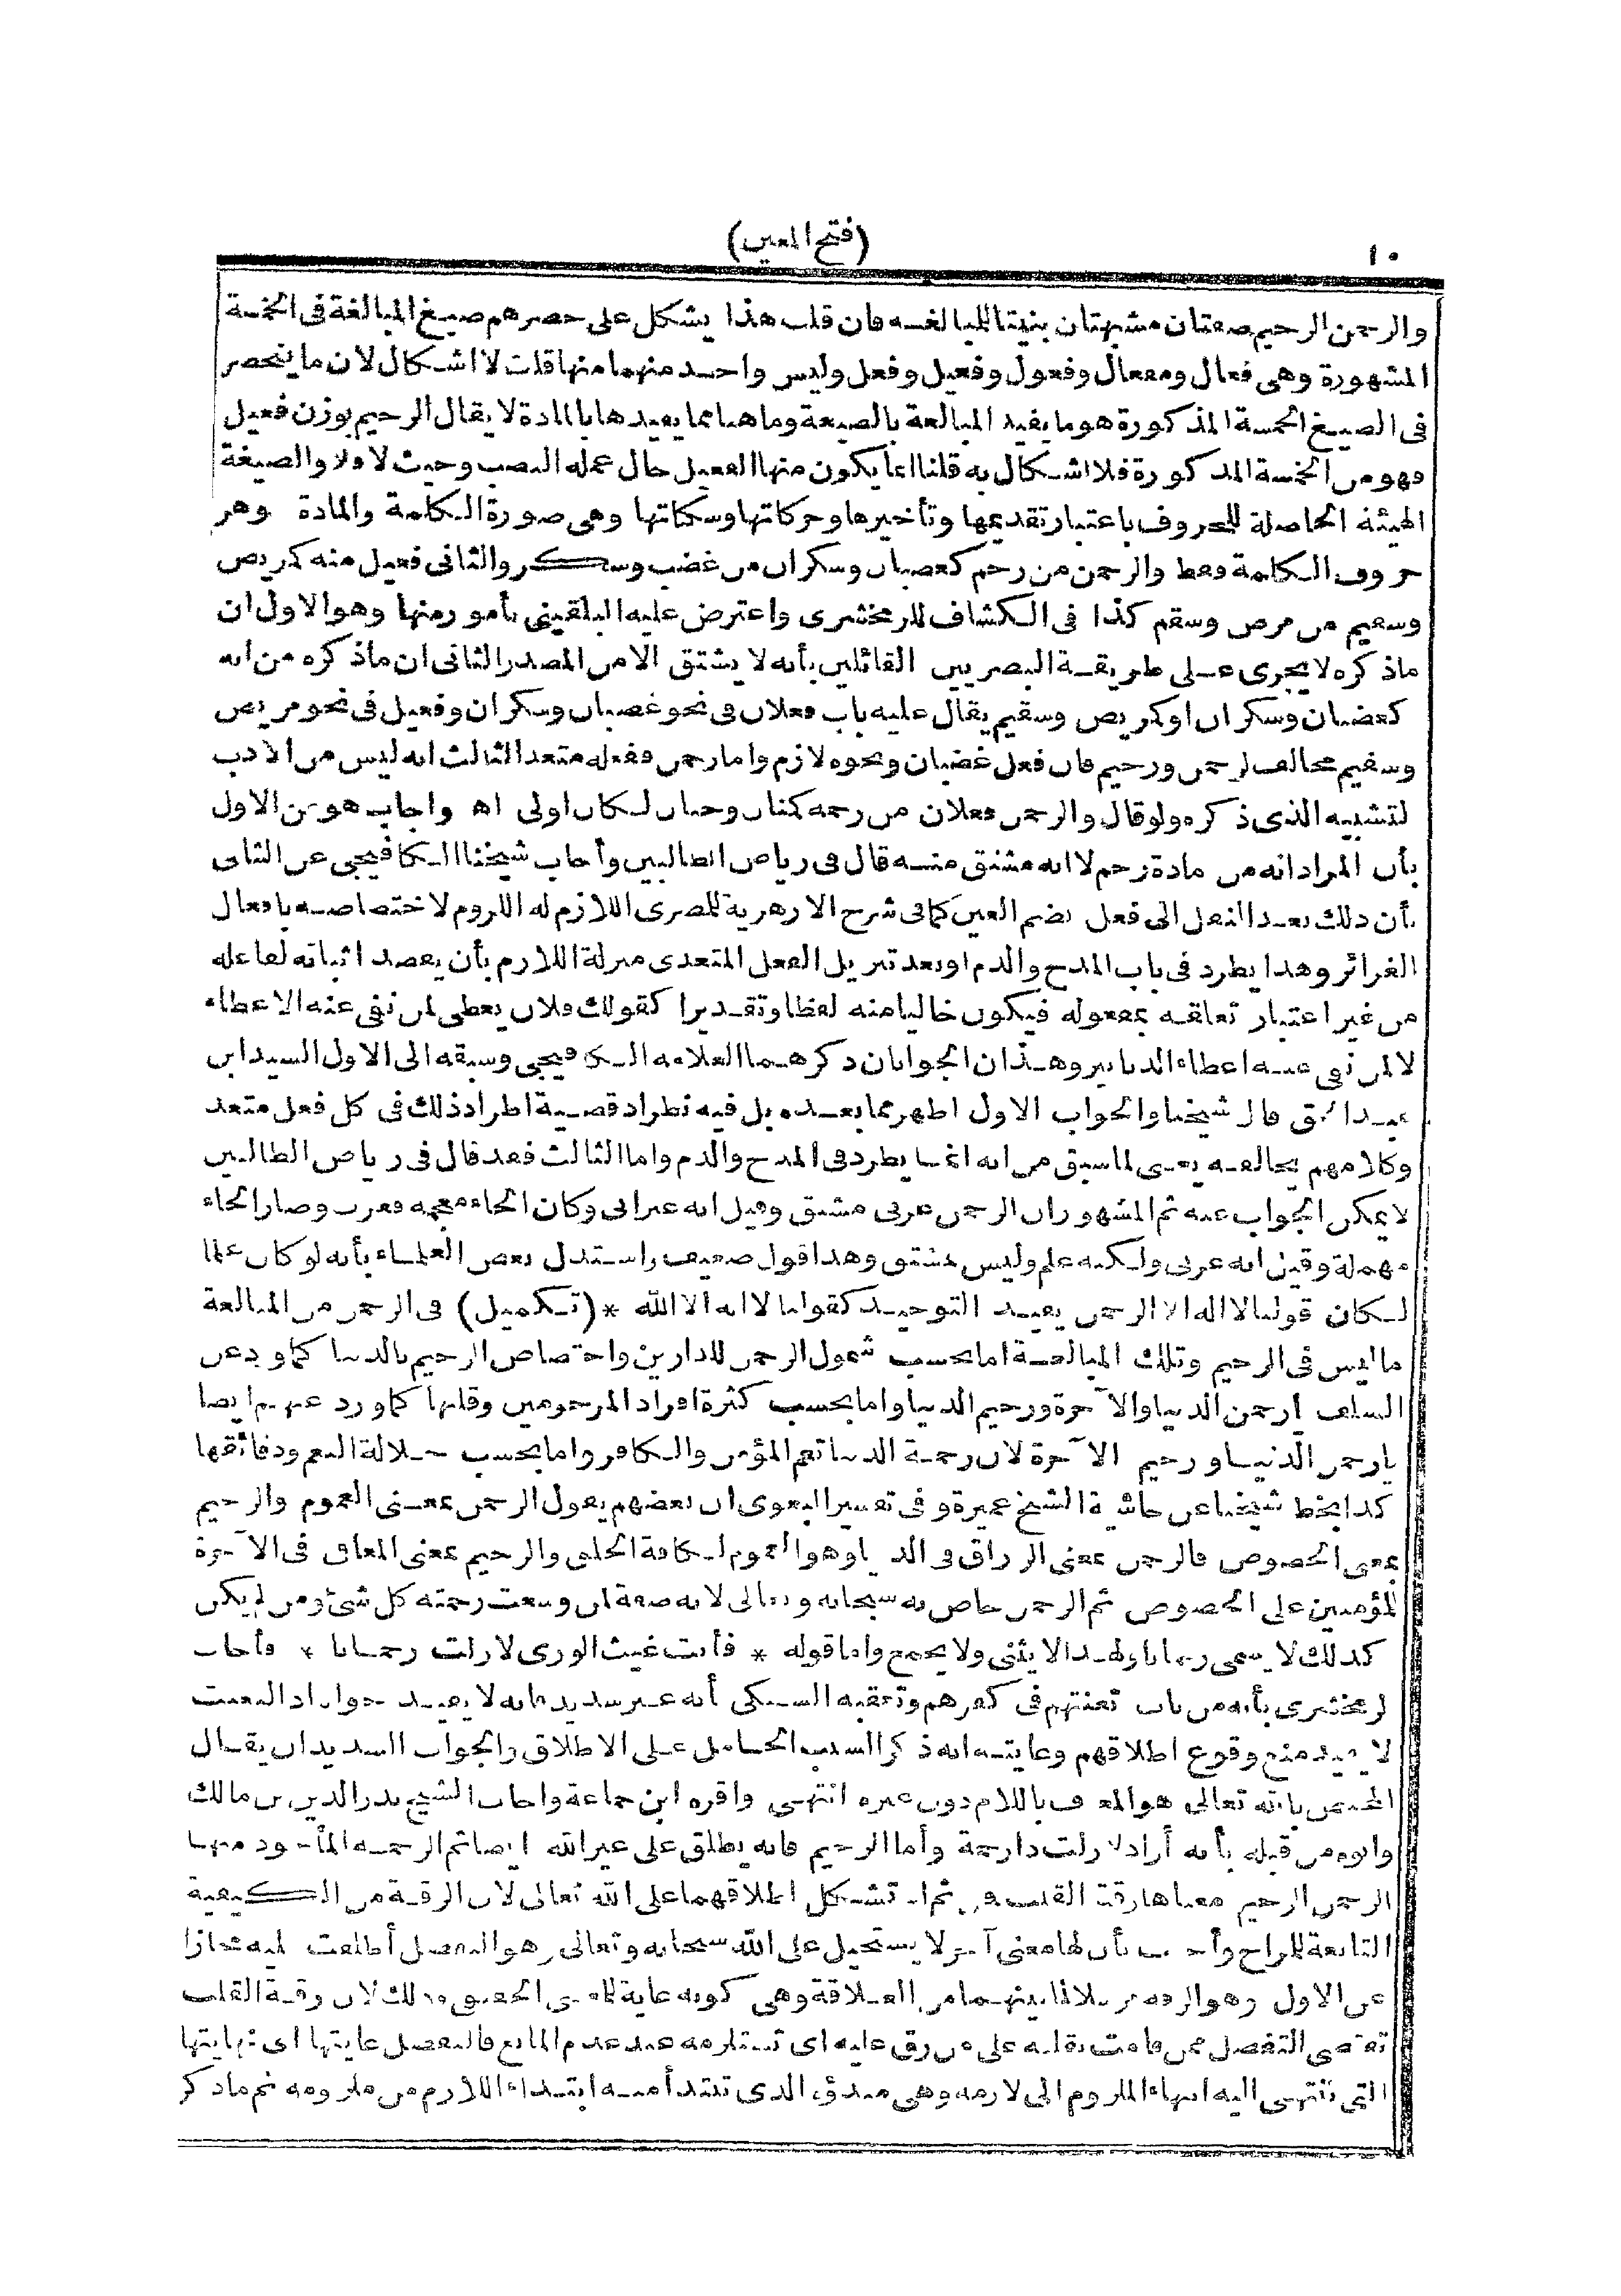 ١٠
(فتح المعين)
والرحمن الرحيم صفتان مشبهتان بنيتا للمبالغة فان قلت هذا يشكل على حصرهم صيغ المبالغة فى الخمسة
المشهورة وهى فعال ومفعال وفعول وفعيل وفعل وليس واحد منهما منها قلت لا اشكال لان ما ينحصر
فى الصيغ الخمسة المذكورة هو ما يفيد المبالغة بالصيغة وما هنا مما يفيدها بالمادة لا يقال الرحيم بوزن فعيل
وهو من الخمسة المذكورة فلا اشكال به قلنا انما يكون منها الفعيل حال عمله النصب وحيث لا ولا والصيغة
الهيئة الحاصلة للحروف باعتبار تقديمها وتأخيرها وحركاتها وسكناتها وهى صورة الكلمة والمادة وهر
حروف الكلمة فقط والرحمن من رحم كغضبان وسكران من غضب وسكر والثانى فعيل منه كمريض
وسقيم من مرض وسقم كذا فى الكشاف للزمخشرى واعترض عليه البلقينى بأمور منها وهو الاول ان
ماذكره لا يجرى على طريقة البصريين القائلين بأنه لا يشتق الا من المصدر الثانى ان ماذكره من انه
كغضبان وسكران او كمريض وسقيم يقال عليه باب فعلان فى نحو غضبان وسكران وفعيل فى نحو مريض
وسقيم مخالف لرحمن ورحيم فان فعل غضبان ونحوه لازم واما رحمن ففعله متعد الثالث انه ليس من الادب
لتشبيه الذى ذكره ولو قال والرحمن فعلان من رحمه كمنان وحنان لكان اولى اه واجاب هو عن الاول
بأن المراد انه من مادة رحم لا انه مشتق منه قال فى رياض الطالبين وأجاب شيخنا الكافيجى عن الثانى
بأن ذلك بعد النقل الى فعل بضم العين كما فى شرح الازهرية للمصرى اللازم له اللزوم لاختصاصه بافعال
الغرائز وهذا يطرد فى باب المدح والذم او بعد تنزيل الفعل المتعدى منزلة اللازم بأن يقصد اثباته لفاعله
من غير اعتبار تعلقه بمفعوله فيكون خاليا منه لفظا وتقديرا كقولك فلان يعطى لمن نفى عنه الاعطاء
لا لمن نفى عنه اعطاء الدنانير وهذان الجوابان ذكرهما العلامه الكافيجى وسبقه الى الاول السيد ابن
عبد الحق قال شيخنا والجواب الاول اظهر مما بعده بل فيه نظر اذ قضية اطراد ذلك فى كل فعل متعد
وكلامهم يخالفه يعنى لما سبق من انه انما يطرد فى المدح والذم واما الثالث فقد قال فى رياض الطالبين
لا يمكن الجواب عنه ثم المشهور ان الرحمن عربى مشتق وقيل انه عبرانى وكان الخاء معجمه فعرب وصار الحاء
مهملة وقيل انه عربى ولكنه علم وليس بمشتق وهذا قول ضعيف واستدل بعض العلماء بأنه لو كان علما
لكان قولنا لا اله الا الرحمن يفيد التوحيد كقولنا لا اله الا الله * (تكميل) فى الرحمن من المبالغة
ما ليس فى الرحيم وتلك المبالغة اما بحسب شمول الرحمن للدارين واختصاص الرحيم بالدنيا كما ورد عن
السلف يارحمن الدنيا والآخرة ورحيم الدنيا واما بحسب كثرة افراد المرحومين وقلتها كما ورد عنهم ايضا
يارحمن الدنيا ورحيم الآخرة لان رحمة الدنيا تعم المؤمن والكافر واما بحسب جلالة النعم ودقائقها
كذا بخط شيخنا عن حاشية الشيخ عميرة وفى تفسير البغوى ان بعضهم يقول الرحمن بمعنى العموم والرحيم
بمعنى الخصوص فالرحمن بمعنى الرزاق فى الدنيا وهو العموم لكافة الخلق والرحيم بمعنى المعافى فى الآخرة
للمؤمنين على الخصوص ثم الرحمن خاص به سبحانه وتعالى لانه صفة ان وسعت رحمته كل شئ ومن لم يكن
كذلك لا يسمى رحمانا ولهذا لا يثنى ولا يجمع واما قوله * فأنت غيث الورى لا زلت رحمانا * فأجاب
لزمخشرى بأنه من باب تعنتهم فى كفرهم وتعقبه السبكى أنه غير سديد فانه لا يفيد جوابا اذ التعنت
لا يفيد منع وقوع اطلاقهم وغايته انه ذكر السبب الحامل على الاطلاق والجواب السديد ان يقال
المختص بالله تعالى هو المعرف باللام دون غيره انتهى واقره ابن جماعة واجاب الشيخ بدر الدين بن مالك
وابوه من قبله بأنه أراد لا زلت ذا رحمة وأما الرحيم فانه يطلق على غير الله ايضا ثم الرحمه المأخوذ منها
الرحمن الرحيم معناها رقة القلب ومن ثم استشكل اطلاقهما على الله تعالى لان الرقة من الكيفية
التابعة للمزاج وأجيب بأن لها معنى آخر لا يستحيل على الله سبحانه وتعالى وهو التفضل أطلقت عليه مجازا
عن الاول وهو الرقه مرسلا لما بينهما من العلاقة وهى كونه غاية للمعنى الحقيقى وذلك لان رقة القلب
تقتضى التفضل ممن قامت بقلبه على من رق عليه اى تستلزمه عند عدم المانع فالتفضل غايتها اى نهايتها
التى تنتهى اليه انتهاء الملزوم الى لازمه وهى مبدؤه الذى تبتدأ منه ابتداء اللازم من ملزومه ثم ماذكر